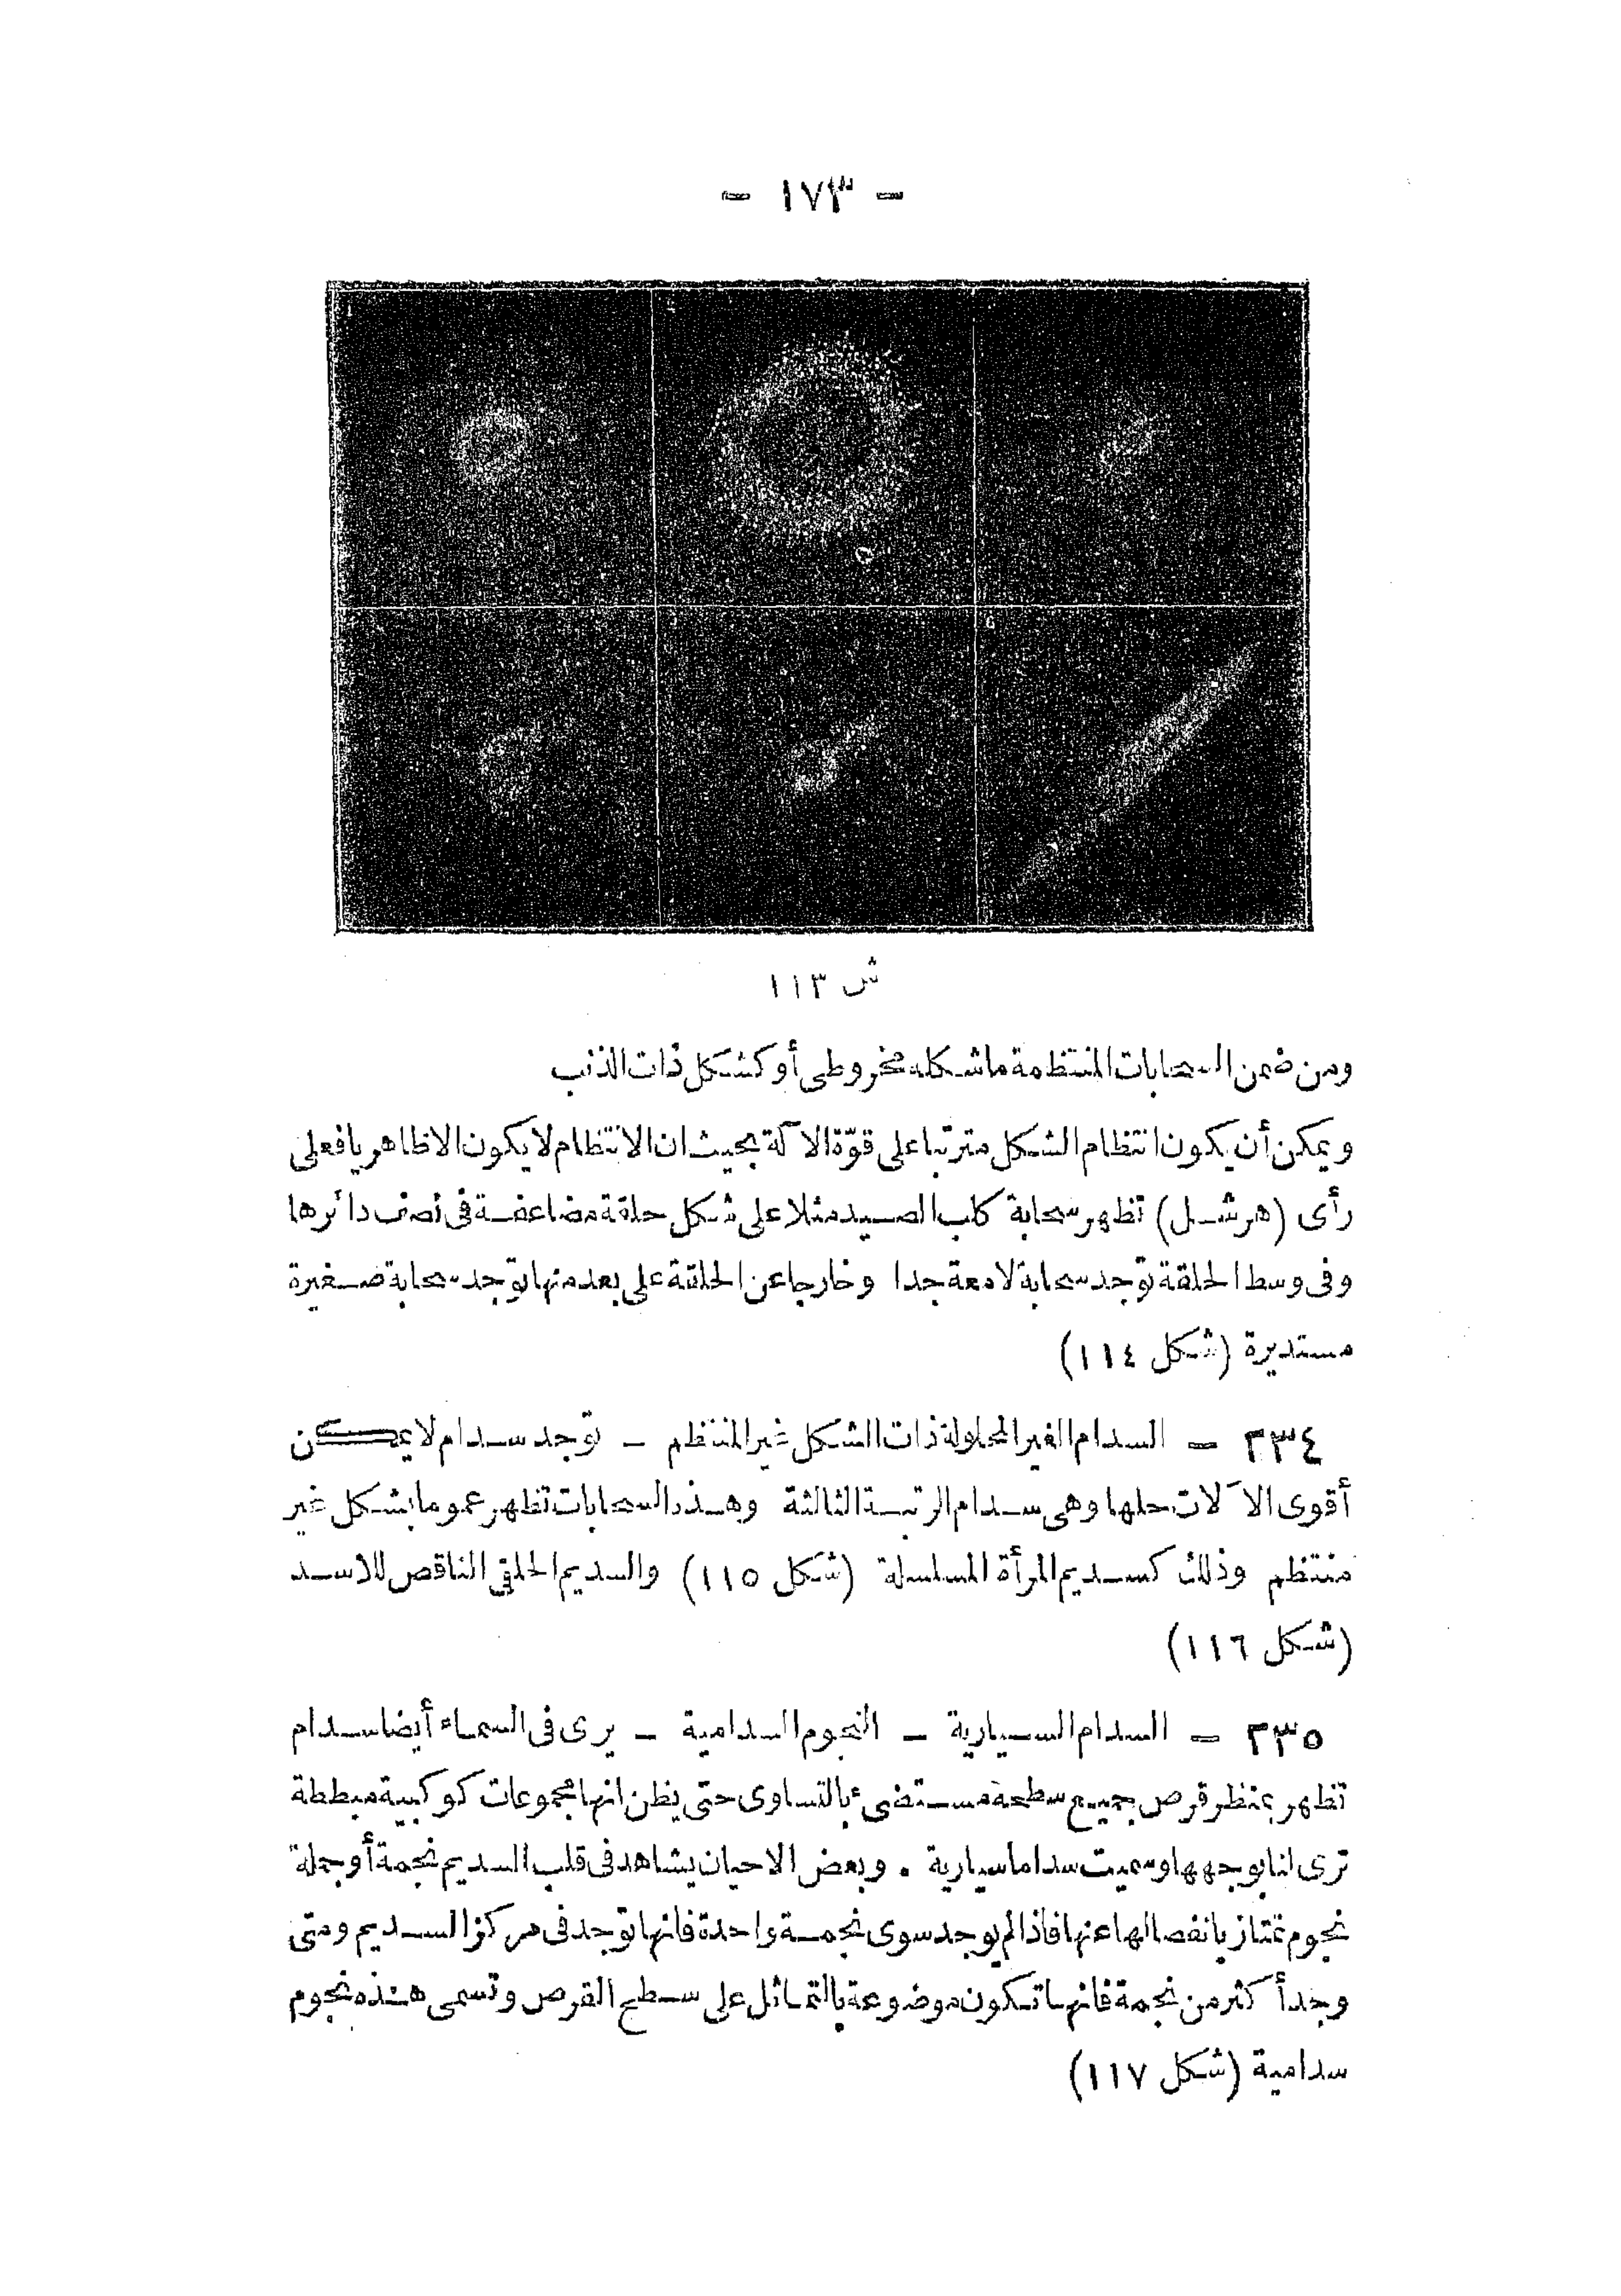 - ١٧٣ -
6
ش ١١٣
ومن ضمن السحابات المنتظمة ما شكله مخروطى أو كشكل ذات الذنب
ويمكن أن يكون انتظام الشكل مترتبا على قوّة الآلة بحيث ان الانتظام لا يكون الا ظاهريا فعلى
رأى (هرشل) تظهر سحابة كلب الصيد مثلا على شكل حلقة مضاعفة فى نصف دائرها
وفى وسط الحلقة توجد سحابة لامعة جدا وخارجا عن الحلقة على بعد منها توجد سحابة صغيرة
مستديرة (شكل ١١٤)
٢٣٤ - السدام الغير المحلولة ذات الشكل غير المنتظم - توجد سدام لا يمكن
أقوى الآلات حلها وهى سدام الرتبة الثالثة وهذه السحابات تظهر عموما بشكل غير
منتظم وذلك كسديم المرأة المسلسلة (شكل ١١٥) والسديم الحلقى الناقص للاسد
(شكل ١١٦)
٢٣٥ - السدام السيارية - النجوم السدامية - يرى فى السماء أيضا سدام
تظهر بمنظر قرص جميع سطحه مستضىء بالتساوى حتى يظن انها مجموعات كوكبية مبططة
ترى لنا بوجهها وسميت سداما سيارية . وبعض الاحيان يشاهد فى قلب السديم نجمة أو جملة
نجوم تمتاز بانفصالها عنها فاذا لم يوجد سوى نجمة واحدة فانها توجد فى مركز السديم ومتى
وجد أكثر من نجمة فانها تكون موضوعة بالتماثل على سطح القرص وتسمى هذه نجوم
سدامية (شكل ١١٧)